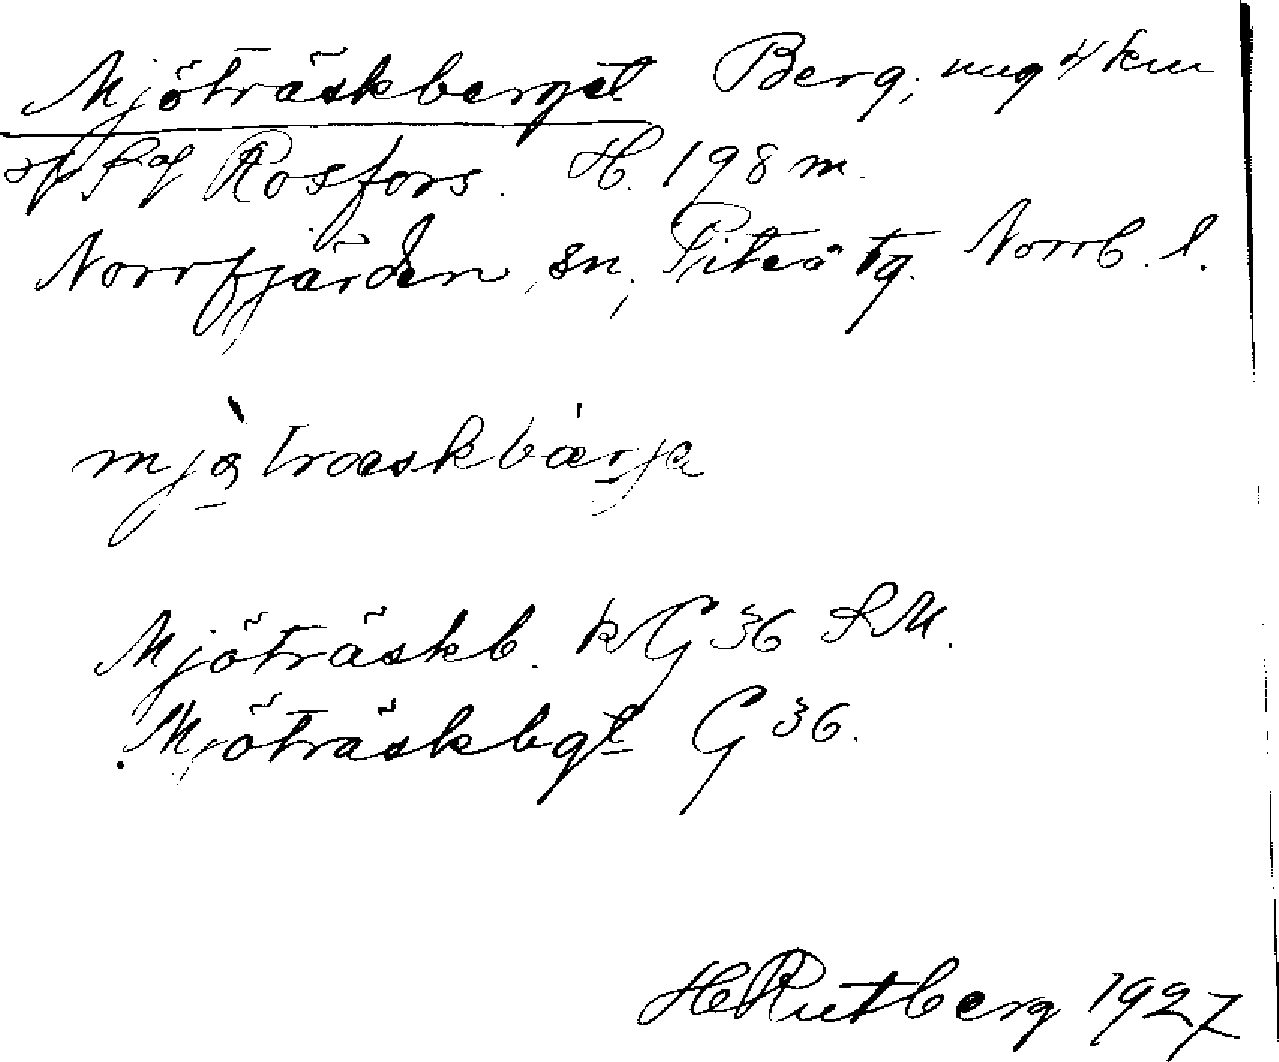 Mjöträskberget Berg; ung 4 km
Rosfors. H. 198 m.
Norrfjärden sn, Piteå tg. Norrb. l.
mjötræskbærje
Mjöträskb. k G 36 SM.
Mjöträskbgt G 36.
H Rutberg 1927